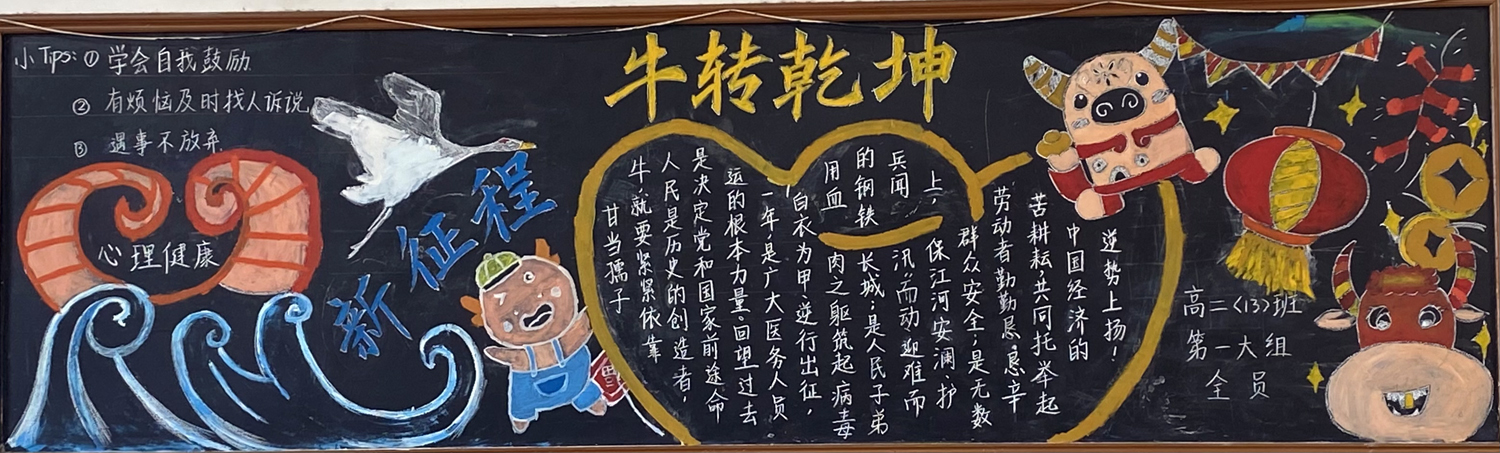 小Tips: ① 学会自我鼓励
② 有烦恼及时找人诉说
③ 遇事不放弃
心理健康
新征程
牛转乾坤
甘当孺子
牛,就要紧紧依靠
人民是历史的创造者,
是决定党和国家前途命
运的根本力量。回望过去
一年是广大医务人员
白衣为甲、逆行出征,
用血肉之躯筑起病毒
的钢铁长城;是人民子弟
兵闻汛而动、迎难而
上,保江河安澜、护
群众安全;是无数
劳动者勤勤恳恳、辛
苦耕耘,共同托举起
中国经济的
逆势上扬!
高二<13>班
第一大组
全员